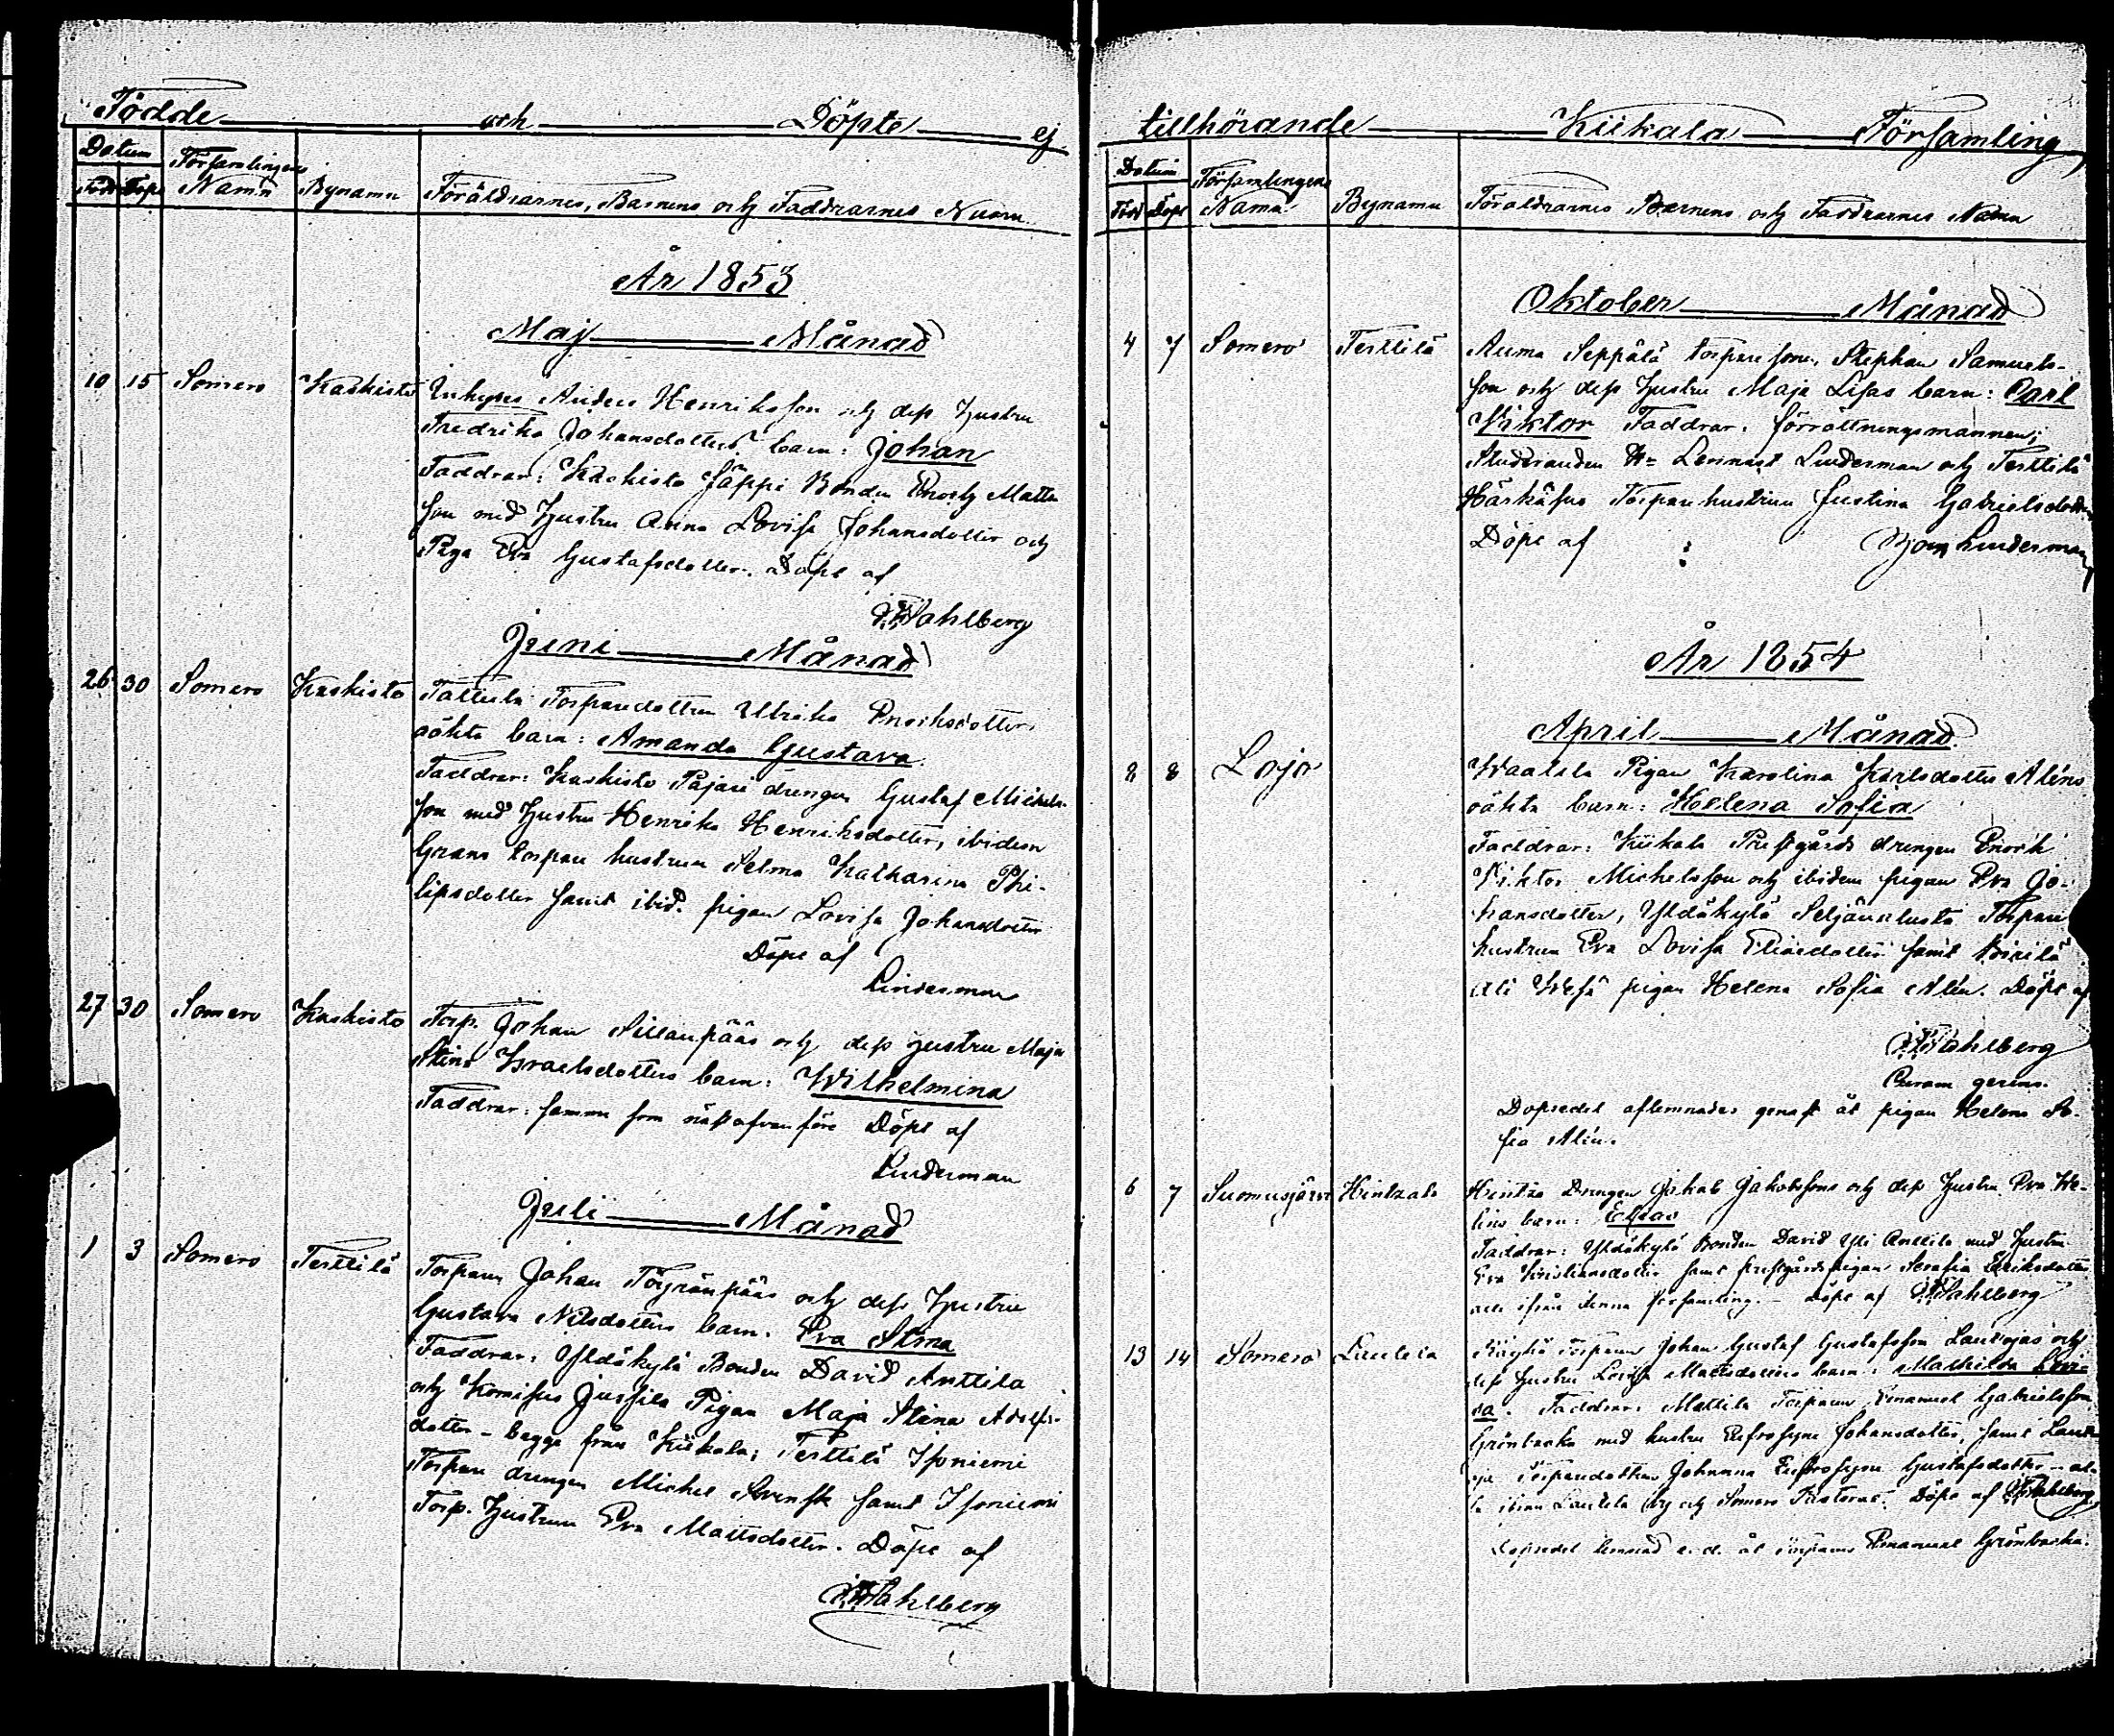 Födde och Döpte ej
Datum Församlingens
Född Döpt Namn Bynamn Föräldrarnes, Barnens och Faddrarnes Namn
År 1853
Maj Månad
10 15 Somero Kaskisto Inhyses Anders Henriksson och dess hustru
Fredrika Johansdotters barn: Johan
Faddrar: Kaskisto Jäppi Bonden Enoch Matts
son med hustru Anna Lovisa Johansdotter och
Piga Eva Gustafsdotter. Döpt af
Wahlberg
Juni Månad
26 30 Somero Kaskisto Torparedottren Ulrika Enoksdotters
oäkta barn: Amanda Gustava.
Faddrar: Kaskisto Pajari drengen Gustaf Michels-
son med hustru Henrika Henriksdotter, ibidem
Grans torpare hustrun Selma Katharina Phi-
lipsdotter samt ibid. pigan Lovisa Johansdotter
Döpt af
Linderman
27 30 Somero Kaskisto Torp. Johan Sillanpääs och dess hustru Maja
Stina Israelsdotters barn: Wilhelmina
Faddrar: samma som näst ofvanföre Döpt af
Linderman
Juli Månad
1 3 Somero Terttilä Torparen Johan Töyränpääs och dess hustru
Gustava Nilsdotters barn. Eva Stina
Faddrar: Yldäkylä Bonden David Anttila
och Komisuo Jussila Pigan Maja Stina Adolfs-
dotter - begge från Kiikala; Terttilä Isoniemi
Torpare drengen Michel Svensk samt Isoniemi
Torp. hustrun Eva Mattsdotter. Döpt af
Wahlberg
tillhörande Kiikala Församling
Datum Församlingens
Född Döpt Namn Bynamn Föräldrarnes Barnens och Faddrarnes Namn
Oktober Månad
4 7 Somero Terttilä Auma Seppälä torpare sone, Stephan Samuels-
son och dess hustru Maja Lisas barn: Carl
Wiktor Faddrar: förrättningsmannen;
Studeranden Hr Lennart Linderman och Terttilä
Torpare hustrun Justina Gabrielsdotter
Döpt af : Linderman
År 1854
April Månad
8 8 Lojo Pigan Karolina Karlsdotter Aléns
oäkta barn: Helena Sofia
Faddrar: Kiikala Prestgårds drengen Enoch
Wiktor Michelsson och ibidem pigan Eva Jo-
hansdotter, Yldäkylä Torpare
hustrun Eva Lovisa Eliaedotter samt
pigan Helena Sofia Alén. Döpt af
Wahlberg
Curam gerens.
Dopsedel aflemnades genast åt pigan Helena So-
fia Alén.
6 7 Suomusjärvi Hintzala Hintza Drengen Jakob Jakobssons och dess hustru Eva He-
lins barn: Elias
Faddrar: Yldäkylä Bonden David Yli Anttila med hustru
Eva Kristiansdotter samt prestgårdspigan Serafia Eriksdotter
alla ifrån denna församling. - Döpt af Wahlberg
13 14 Somero Lautela Torparen Johan Gustaf Gustafsson Lautojas och
dess hustru Lovisa Mattsdotters barn: Mathilda Lovi-
sa. Faddrar: Mattila Torparen Emanuel Gabrielsson
Grönbacka med hustru Eufrosyne Johansdotter, samt Laut-
oja Torparedottren Johanna Eufrosyne Gustafsdotter - al-
la ifrån Lautela by och Somero Pastorat. Döpt af Wahlberg
Dopsedel lemnad e. d. åt torparen Emanuel Grönbacka.